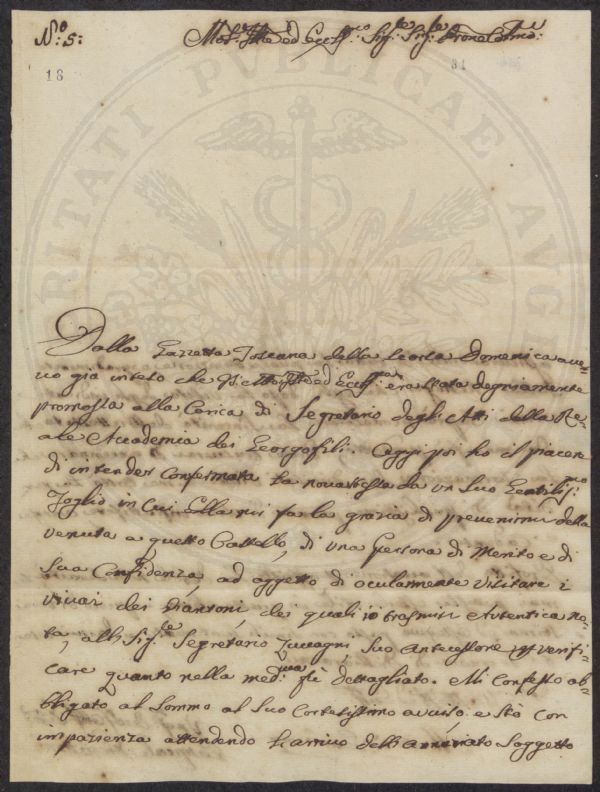 N.º 5:
Mol.º Ill.re ed Eccell.mo Sig.re Sig.re Prone Colmo:
18
31
PRITATI PUBLICAE AUGE
Dalla Gazzetta Toscana della scorsa Domenica ave=
vo già inteso che V.S. ed Eccll.ma era stata degniamente
promossa alla Carica di Segretario degli Atti della Re=
ale Accademia dei Georgofili. Oggi poi ho il piacere
di intender confermata la nuova stessa da un Suo Gentiliss:mo
Foglio in cui Ella mi fa la grazia di prevenirmi della
venuta a questo Castello, di una Persona di Merito e di
Sua Confidenza, ad oggetto di ocularmente visitare i
vivai dei Piantoni, dei quali io trasmisi Autentica no=
ta, all Sig.re Segretario Zuccagni, Suo Antecessore p verifi=
care quanto nella med:ma fù dettagliato. Mi confesso ob=
bligato al sommo al Suo Cortesissimo avviso, e stò con
impazienza attendendo l'arrivo dell Annunziato Soggetto